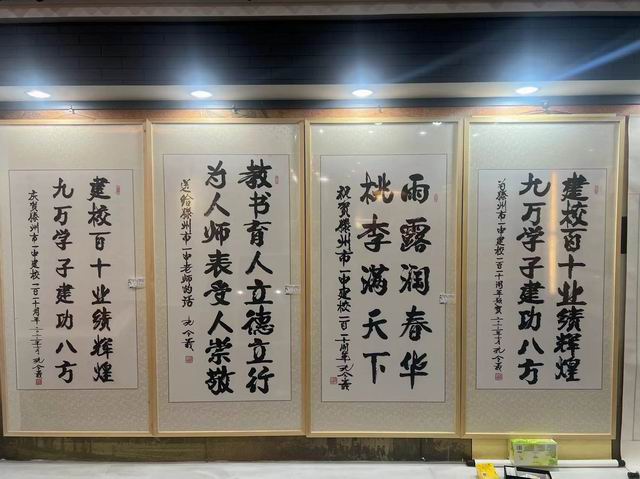 建校百十业绩辉煌
九万学子建功八方
庆贺滕州市一中建校一百一十周年
孔令義
教书育人立德立行
为人师表受人崇敬
送给滕州市一中老师的话
孔令義
雨露润春华
桃李满天下
祝贺滕州市一中建校一百一十周年
孔令義
建校百十业绩辉煌
九万学子建功八方
滕州市一中建校一百一十周年
孔令義